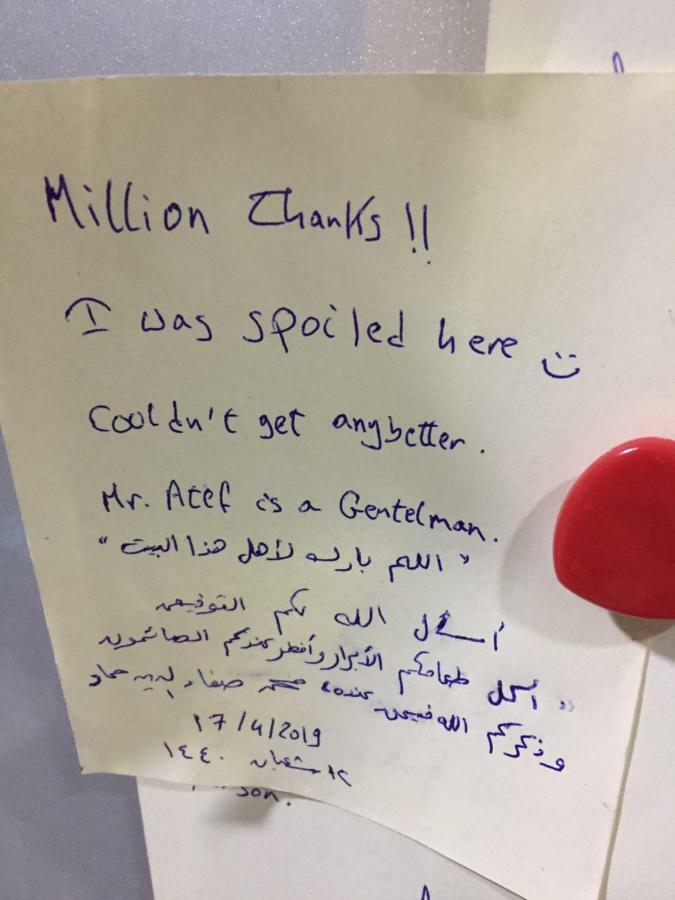 Million Thanks !!
I was spoiled here
Couldn't get any better.
Mr. Atef is a Gentelman.
" اللهم بارك لأهل هذا البيت "
أسأل الله لكم التوفيق
" أكل طعامكم الأبرار وأفطر عندكم الصائمون
وذكركم الله فيمن عنده " صفاء الدين حماد
17/4/2019
١٢ شعبان ١٤٤٠
son.